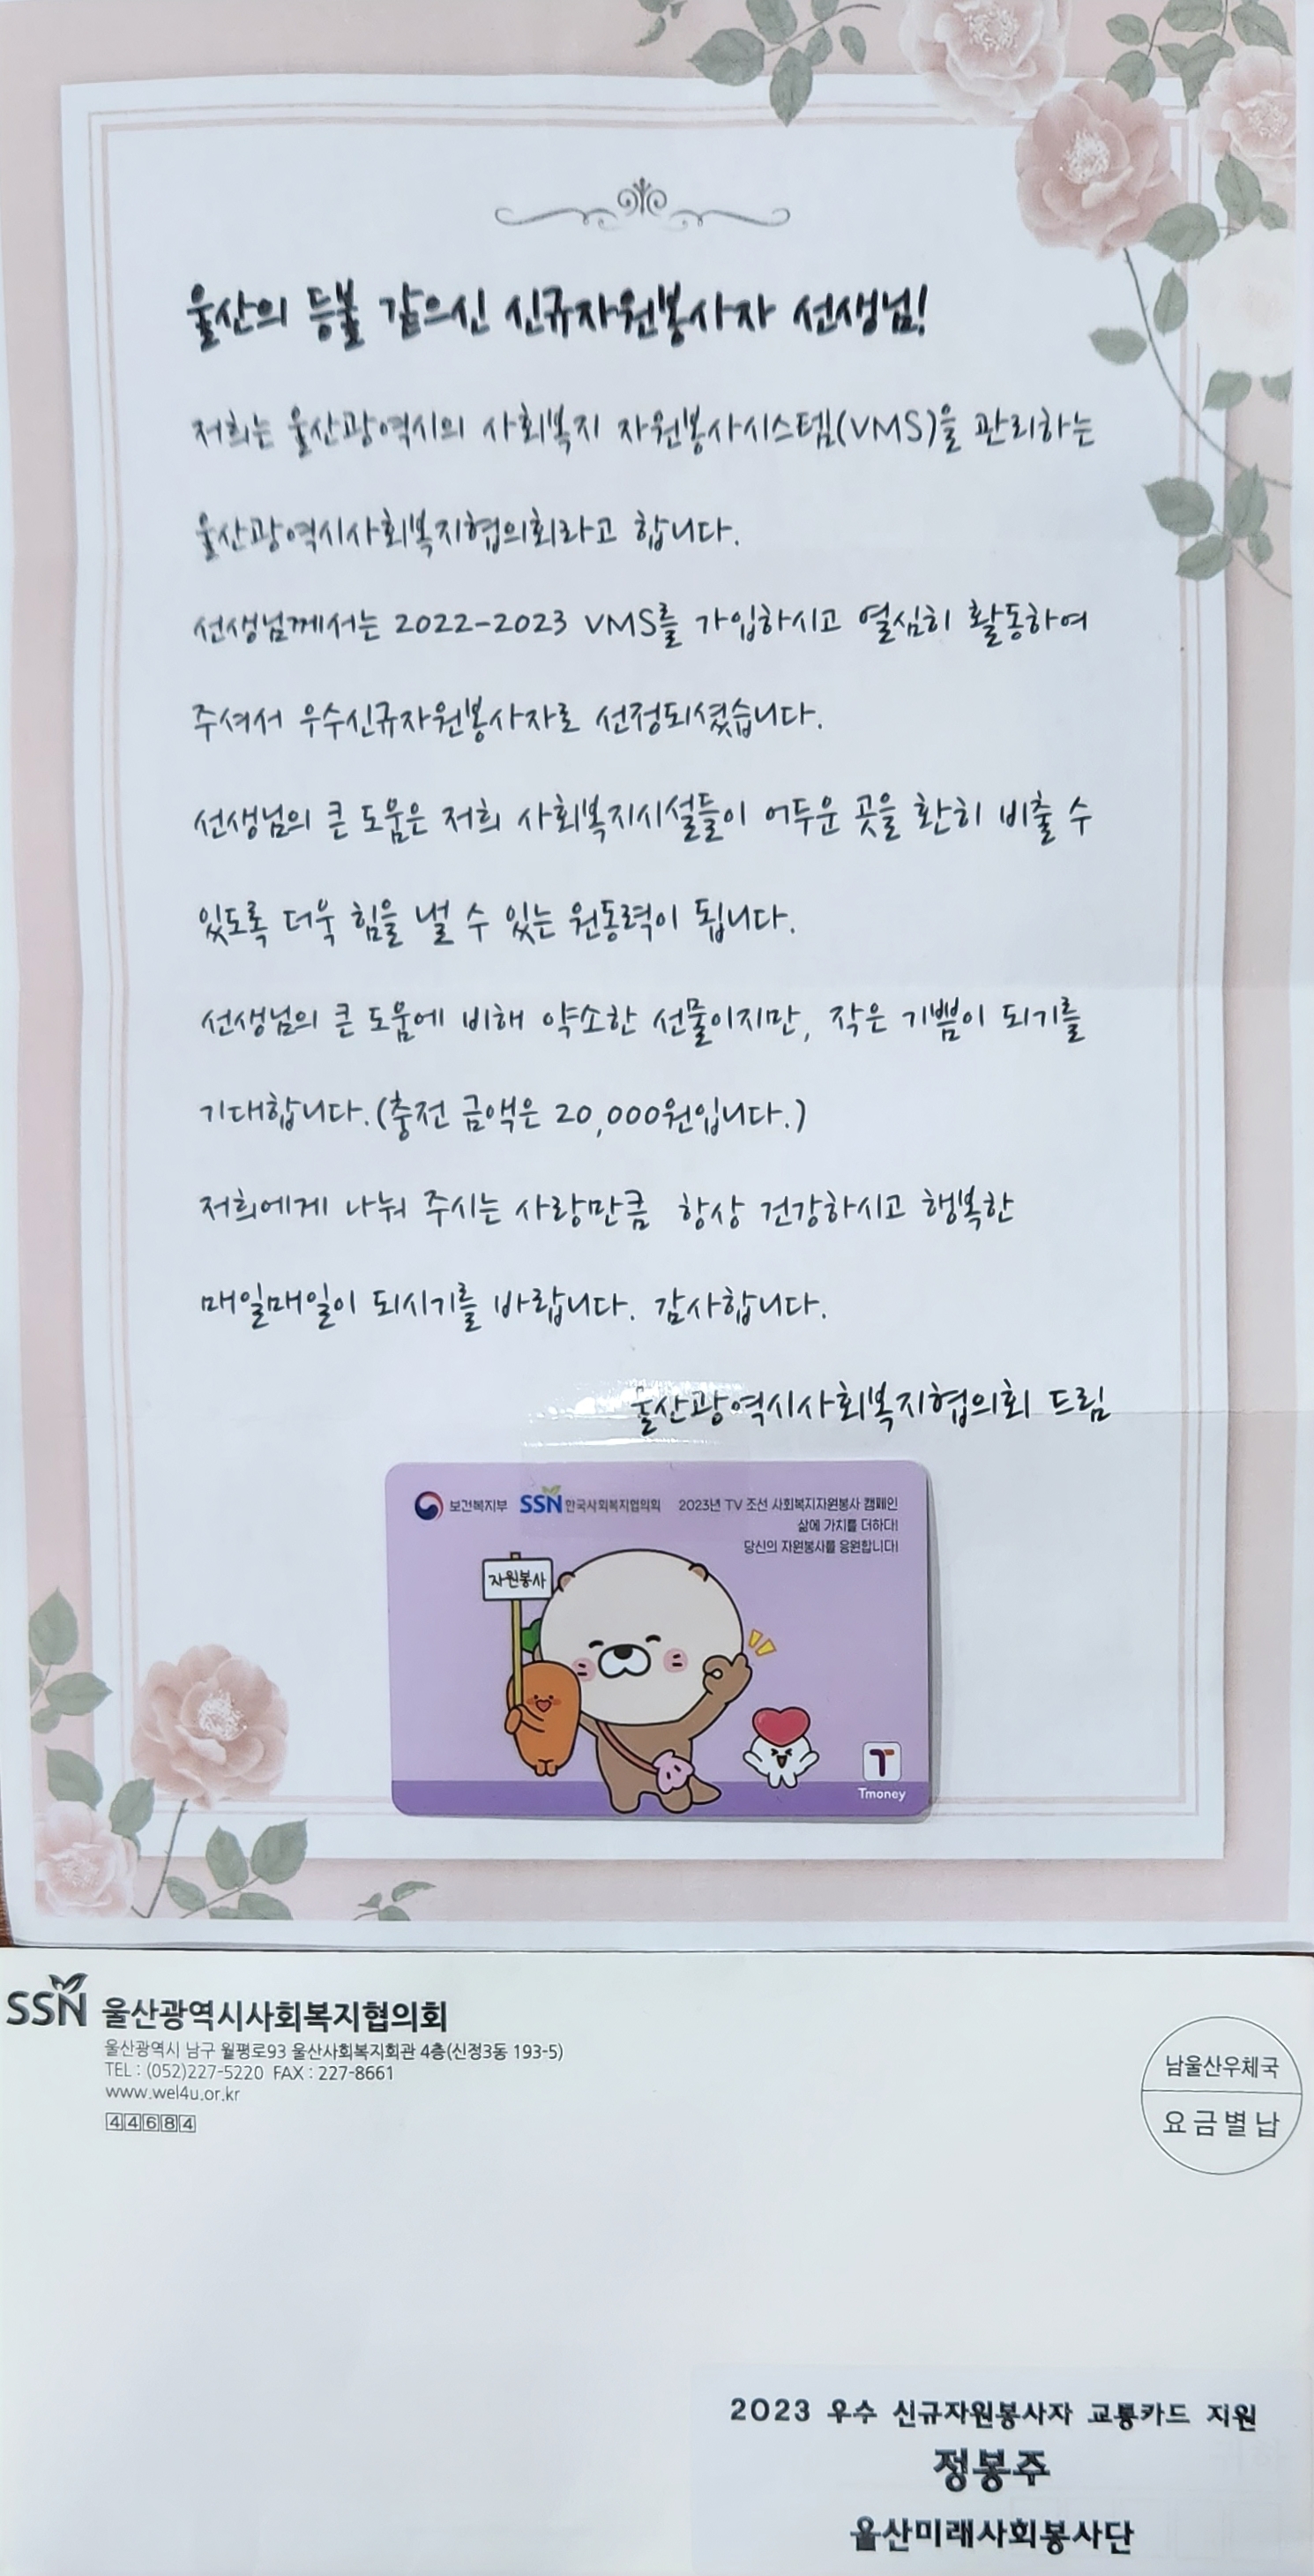 울산의 등불 같으신 신규자원봉사자 선생님!
저희는 울산광역시의 사회복지 자원봉사시스템(VMS)을 관리하는
울산광역시사회복지협의회라고 합니다.
선생님께서는 2022-2023 VMS를 가입하시고 열심히 활동하여
주셔서 우수신규자원봉사자로 선정되셨습니다.
선생님의 큰 도움은 저희 사회복지시설들이 어두운 곳을 환히 비출 수
있도록 더욱 힘을 낼 수 있는 원동력이 됩니다.
선생님의 큰 도움에 비해 약소한 선물이지만, 작은 기쁨이 되기를
기대합니다.(충전 금액은 20,000원입니다.)
저희에게 나눠 주시는 사랑만큼 항상 건강하시고 행복한
매일매일이 되시기를 바랍니다. 감사합니다.
울산광역시사회복지협의회 드림
보건복지부 SSN 한국사회복지협의회 2023년 TV 조선 사회복지자원봉사 캠페인
삶에 가치를 더하다!
당신의 자원봉사를 응원합니다!
자원봉사
T
Tmoney
SSN 울산광역시사회복지협의회
울산광역시 남구 월평로93 울산사회복지회관 4층(신정3동 193-5)
TEL : (052)227-5220 FAX : 227-8661
www.wel4u.or.kr
44684
남울산우체국
요금별납
2023 우수 신규자원봉사자 교통카드 지원
정봉주
울산미래사회봉사단